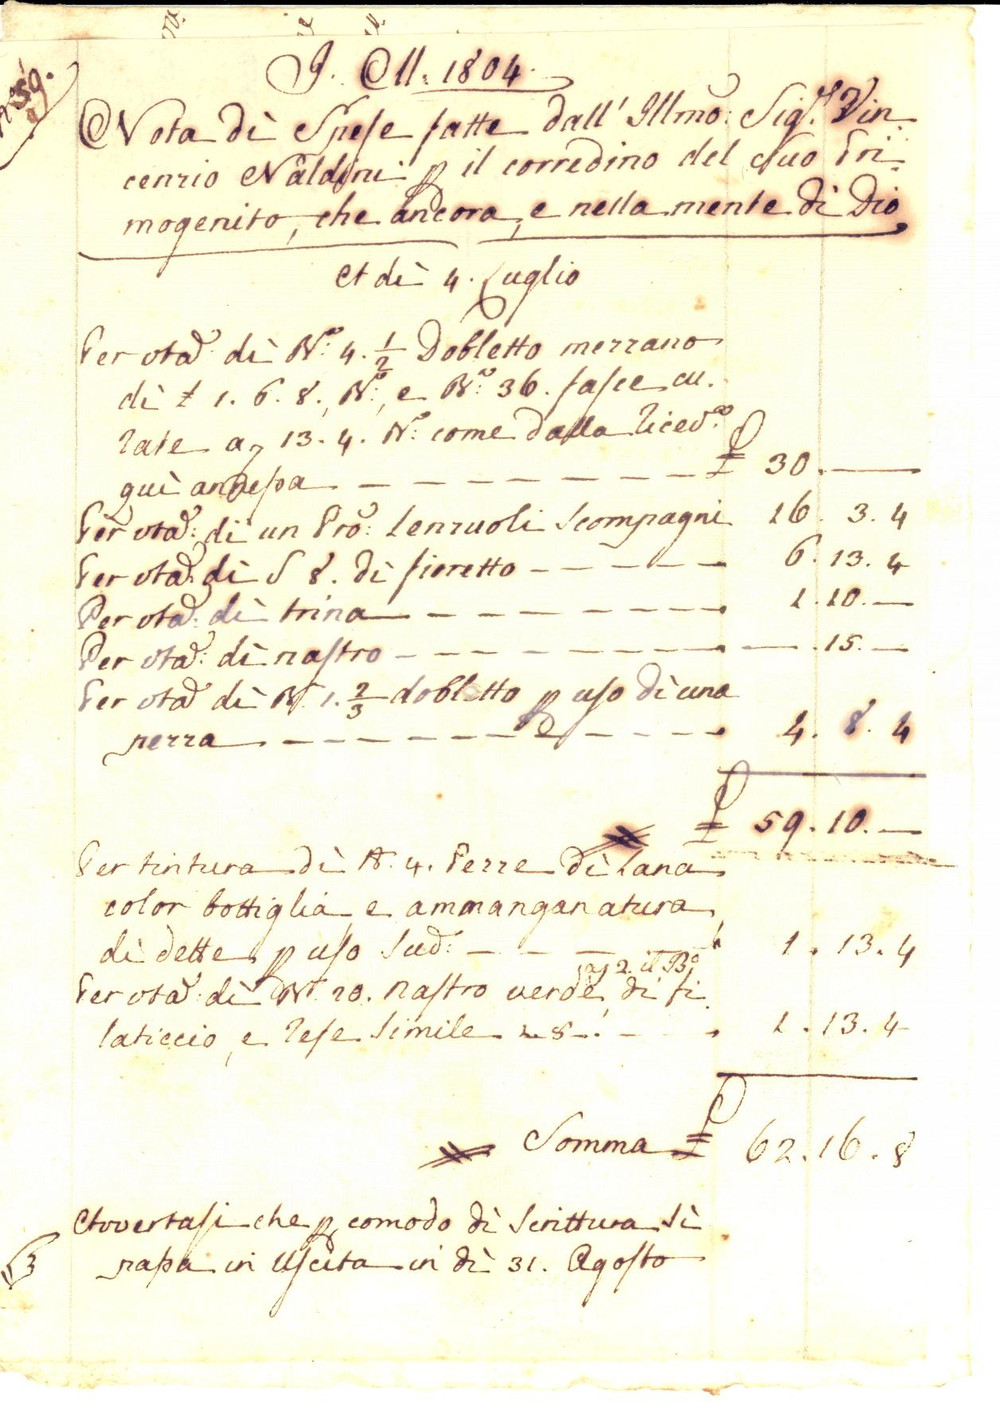 N.º 59.
J. M. 1804.
Nota di Spese fatte dall' Illmo: Sig.r Vin
cenzio Naldini p il corredino del suo Pri=
mogenito, che ancora, e nella mente di Dio
A di 4. Luglio
Per vta: di Br. 4. 1/2 Dobletto mezzano
di £ 1. 6. 8., Br:, e Br. 36. fasce cu.
rate a 13. 4. Br. come dalla Ricev.a
qui annessa £ 30. —
Per vta: di un Pro: Lenzuoli scompagni 16. 3. 4
Per vta: di S 8. di fioretto 6. 13. 4
Per vta: di trina 1. 10. —
Per vta: di nastro — . 15. —
Per vta: di Br 1. 2/3 dobletto p uso di una
pezza 4. 8. 4
£ 59. 10. —
Per tintura di N. 4. Pezze di Lana
color bottiglia e ammanganatura
di dette p uso Sud: 1. 13. 4
a 2. il Br
Per vta: di Br. 20. nastro verde, di fi
laticcio, e refe simile 1. 13. 4
Somma £ 62. 16. 8
Avvertasi che p comodo di Scrittura si
passa in Uscita in di 31. Agosto